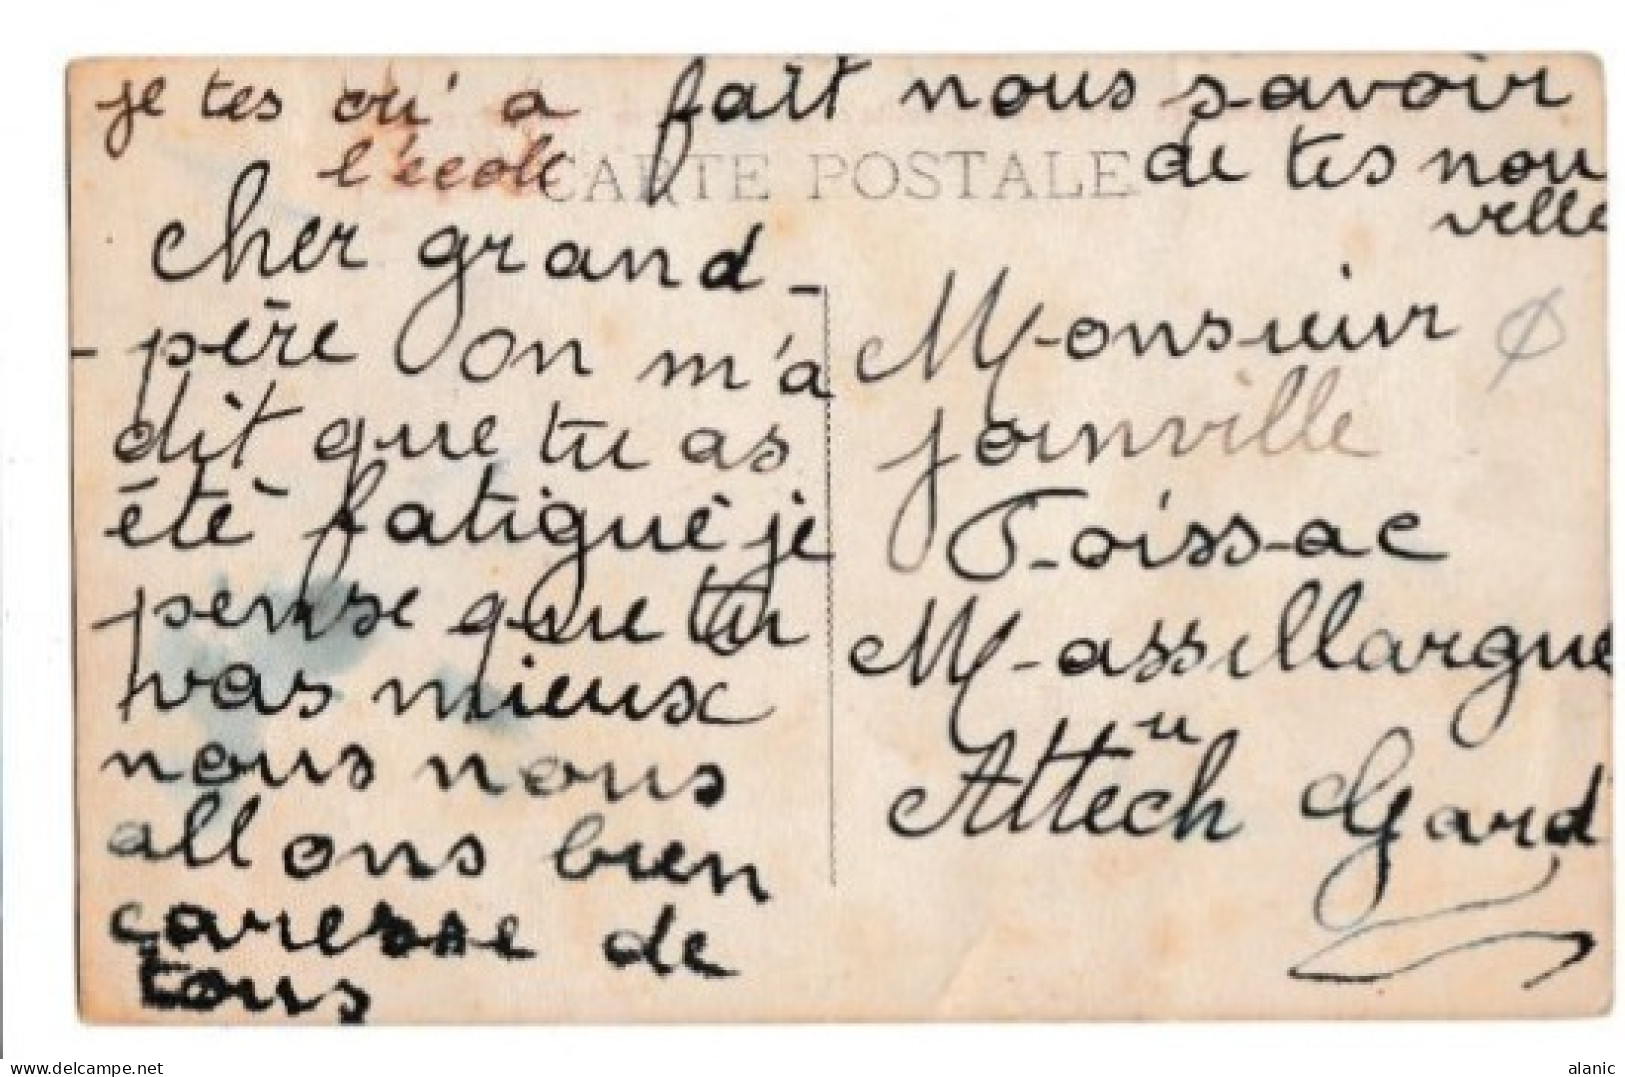 je tes ou' a
l'ecole
fait nous savoir
de tes nou
velle
CARTE POSTALE
cher grand-
-père on m'a
dit que tu as
été fatigué je
pense que tu
vas mieux
nous nous
allons bien
caresse de
tous
Monsieur
joinville
Toissac
Massillargue
Attuech Gard
alanic